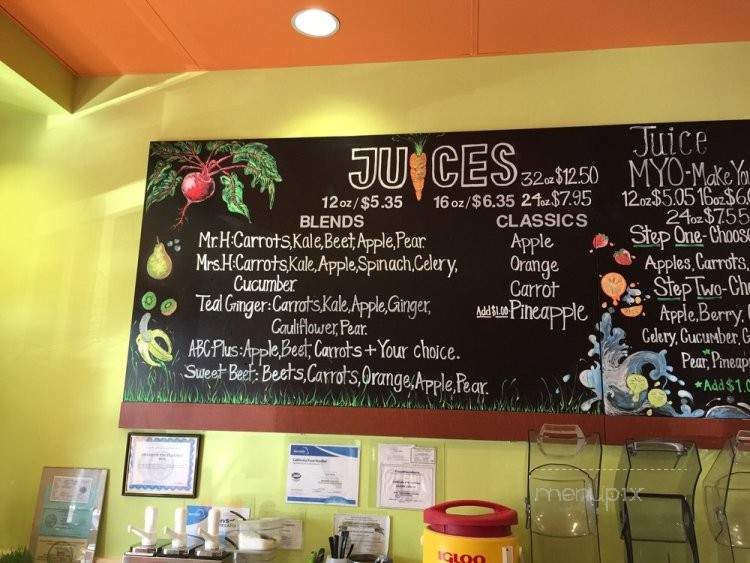 JUICES
32oz $12.50
12 oz/$5.35 16 oz/$6.35 24oz.$7.95
BLENDS
Mr.H:Carrots,Kale,Beet,Apple,Pear.
Mrs.H:Carrots,Kale,Apple,Spinach,Celery,
Cucumber
Teal Ginger: Carrots,Kale,Apple,Ginger,
Cauliflower, Pear.
ABC Plus: Apple, Beet, Carrots + Your choice.
Sweet Beet: Beets, Carrots, Orange, Apple, Pear.
CLASSICS
Apple
Orange
Carrot
Add $1.00 Pineapple
Juice
MYO-Make You
12oz$5.05 16oz$6.0
24oz $7.55
Step One-Choose
Apples, Carrots,
Step Two-Cho
Apple, Berry,
Celery, Cucumber, G
Pear, Pineapp
*Add $1.0
IGLOO
menupix